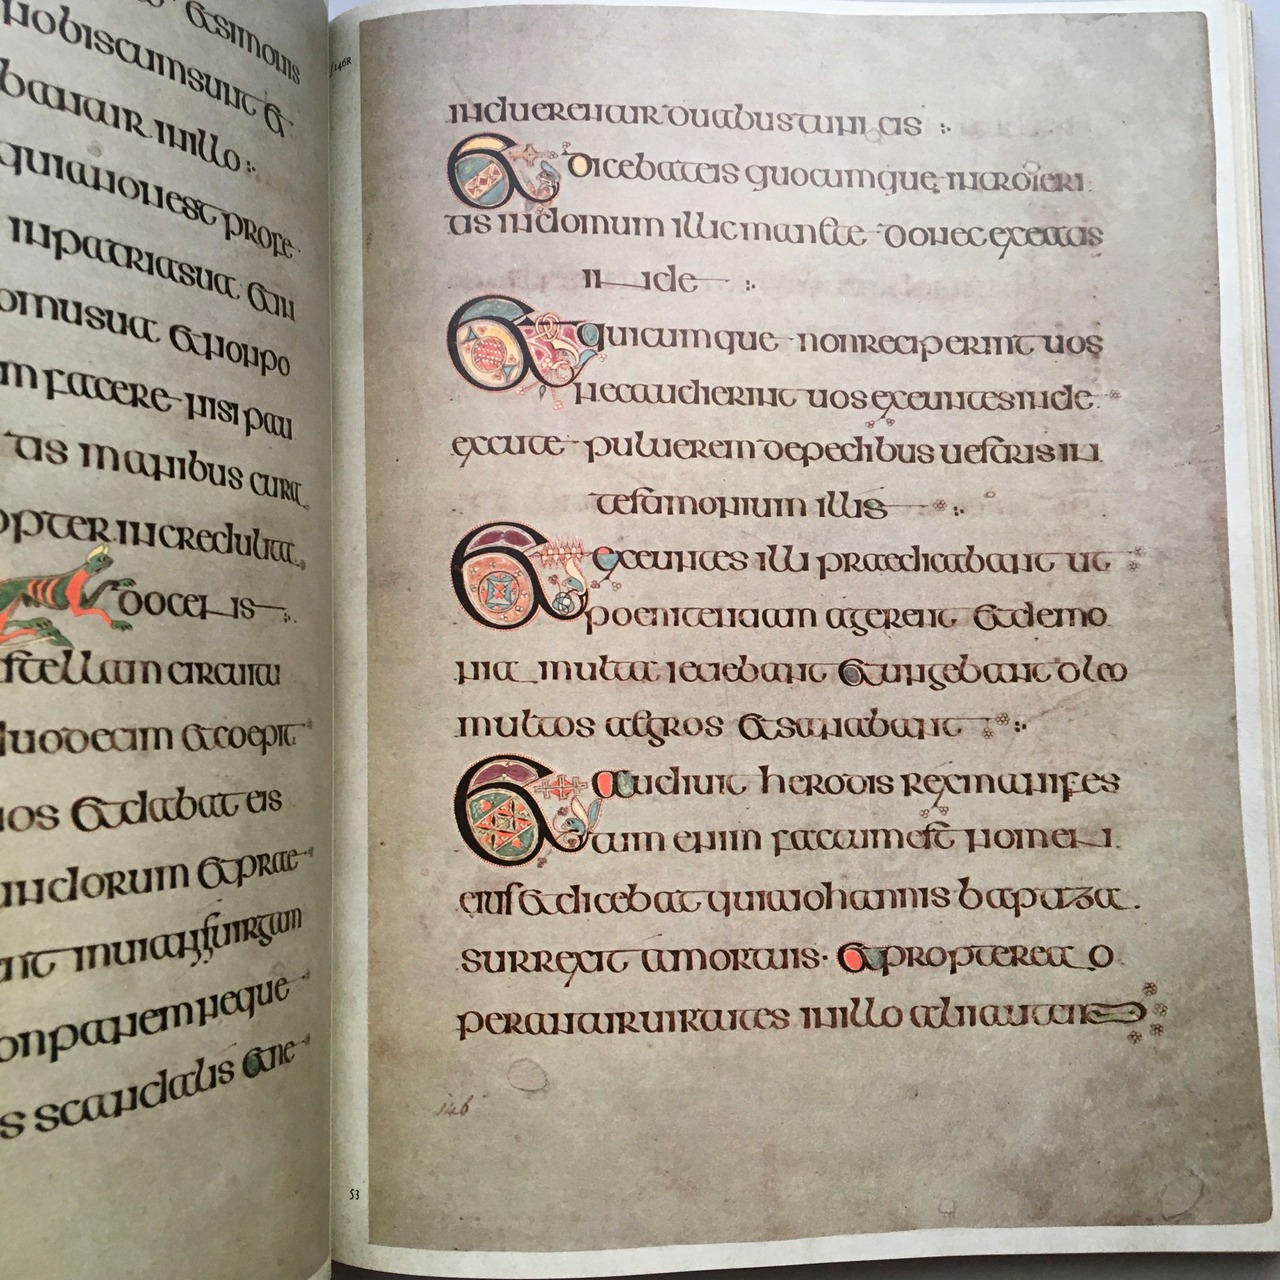 &simonis
nobiscumsunt &
bantur inillo
quianonest profe
inpatriasua &in
omusua &nonpo
m facere nisi pau
tis manibus cura
opter incredulita
docens
stellam circuitu
duodecim &coepit
uos &dabat eis
undorum &prae
ent inuiamsiuirgam
onpanemneque
s scandalis &ne
f146R
induerentur duabustunicis
&dicebateis quocumque introieri
tis indomum illicmanete donec exeatis
inde
&quicumque nonreceperint uos
necaudierint uos exeuntesinde
excutite puluerem depedibus uestris in
testamonium illis
&exeuntes illi praedicabant ut
poenitentiam agerent &demo
nia multa ieciebant &ungebant oleo
multos aegros &sanabant
&audiuit herodis rex manifes
tum enim factumest nomen
eius &dicebat quiaiohannis baptiza
surrexit amortuis &propterea o
perantur uirtutes inillo
146
53